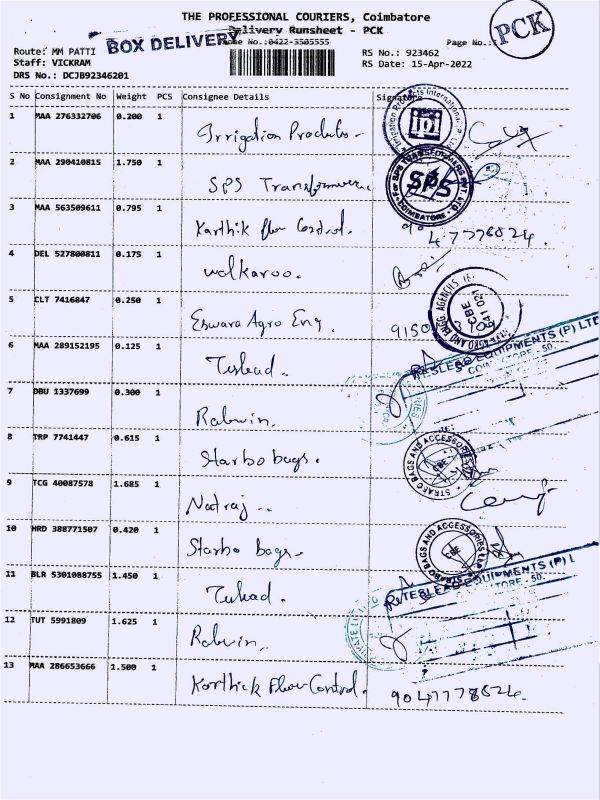 THE PROFESSIONAL COURIERS, Coimbatore
Delivery Runsheet - PCK
BOX DELIVERY
Phone No.:0422-3505555
Page No.:
PCK
Route: MM PATTI
RS No.: 923462
Staff: VICKRAM
RS Date: 15-Apr-2022
DRS No.: DCJB92346201
S No Consignment No Weight PCS Consignee Details Signature
1 MAA 276332706 0.200 1 Irrigation Products
ipi
2 MAA 290410815 1.750 1 SPS Transformers.
For SPS TRANSFORMERS PVT. LTD. SPS COIMBATORE
3 MAA 563509611 0.795 1 Karthik flow Control. 9047778524.
4 DEL 527800811 0.175 1 walkaroo.
5 CLT 7416847 0.250 1 Eswara Agro Eng.
AGRO AND ENGG. AGENCIES CBE 641 021
6 MAA 289152195 0.125 1 Teslead.
TESLEAD EQUIPMENTS (P) LTD
7 DBU 1337699 0.300 1 Rabwin.
8 TRP 7741447 0.615 1 Starbo bags.
BAGS AND ACCESSORIES CBE
9 TCG 40087578 1.685 1 Natraj..
10 HRD 388771507 0.420 1 Starbo bags
BAGS AND ACCESSORIES LLP CBE
11 BLR 5301088755 1.450 1 Teslead.
TESLEAD EQUIPMENTS (P) L
12 TUT 5991809 1.625 1 Rabwin.
PRIVATE LI
13 MAA 286653666 1.500 1 Karthick Flow Control. 9047778524.